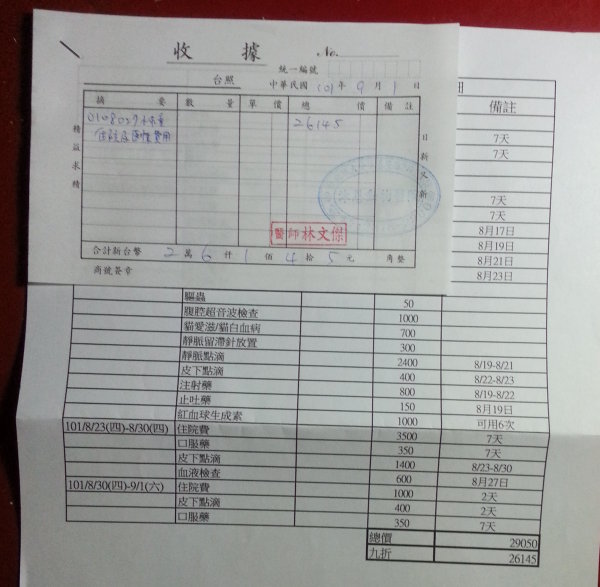 收據 No.
統一編號
台照 中華民國 101年 9月 1日
摘要 數量 單價 總價 備註
26145
住院及醫療費用
精益求精
日新又新
醫師 林文傑
合計新台幣 2萬 6仟 1佰 4拾 5元 角整
商號簽章
備註
7天
7天
7天
7天
8月17日
8月19日
8月21日
8月23日
驅蟲 50
腹腔超音波檢查 1000
貓愛滋/貓白血病 700
靜脈留滯針放置 300
靜脈點滴 2400 8/19-8/21
皮下點滴 400 8/22-8/23
注射藥 800 8/19-8/22
止吐藥 150 8月19日
紅血球生成素 1000 可用6次
101/8/23(四)-8/30(四) 住院費 3500 7天
口服藥 350 7天
皮下點滴 1400 8/23-8/30
血液檢查 600 8月27日
101/8/30(四)-9/1(六) 住院費 1000 2天
皮下點滴 400 2天
口服藥 350 7天
總價 29050
九折 26145